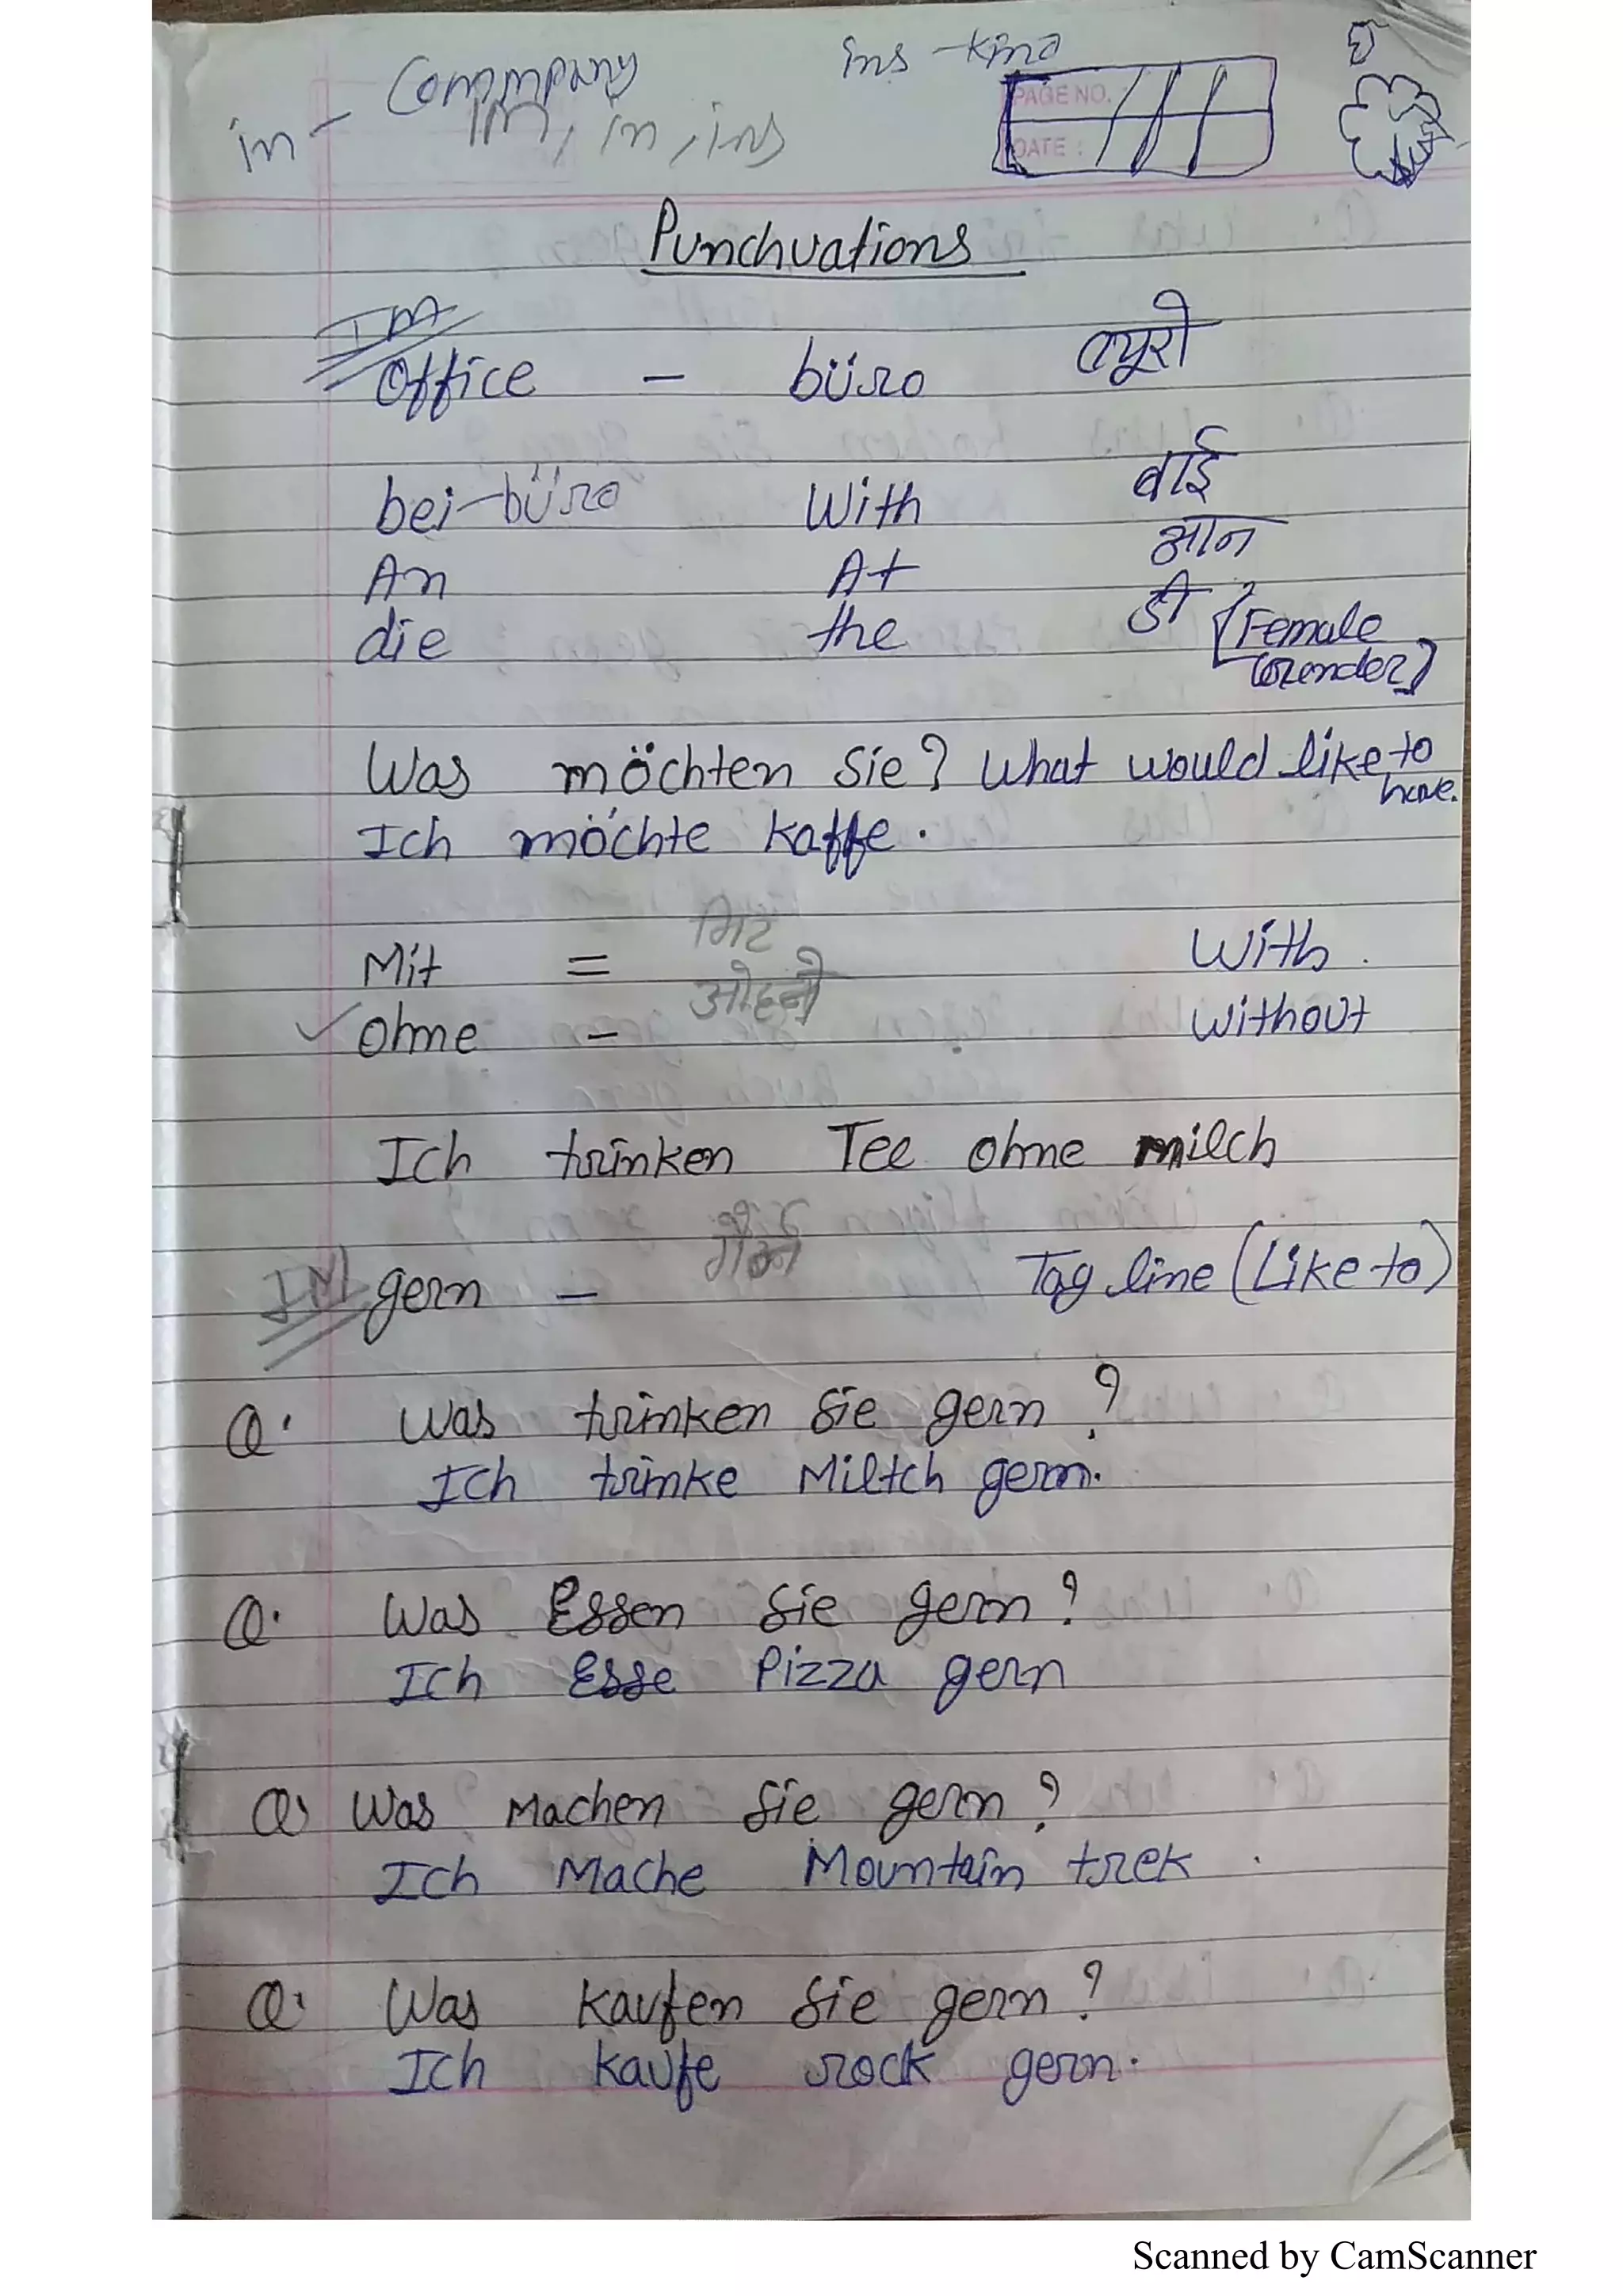 ins - kind
in - Commpany
IM, in, ins
PAGE NO.
DATE :
Punchuations
IM
Office - büro ब्यूरो
bei-büro With बाई
An At आन
die the डी {Female
Gender}
Was möchten Sie? What would like to
have.
Ich möchte kaffe.
Mit = मिट With.
ohne - ओहने Without
Ich trinken Tee ohne milch
IM gern - Tag line (Like to)
Q. Was trinken Sie gern?
Ich trinke Miltch gern.
Q. Was Essen Sie gern?
Ich Esse Pizza gern
Q. Was Machen Sie gern?
Ich Mache Mountain trek.
Q. Was kaufen Sie gern?
Ich kaufe rock gern.
Scanned by CamScanner